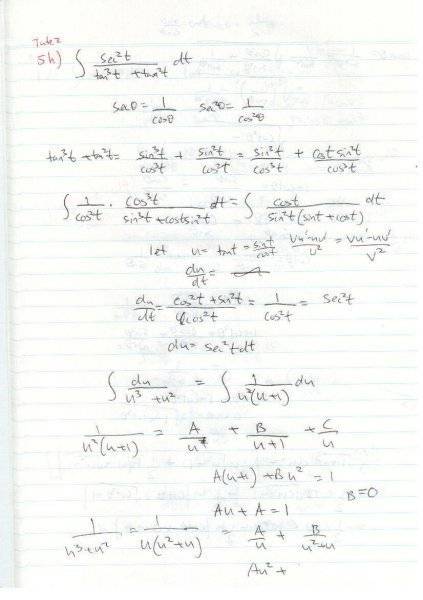 Tute 2
5h) ∫ sec²t / (tan³t + tan²t) dt
secθ = 1/cosθ   sec²θ = 1/cos²θ
tan³t + tan²t = sin³t/cos³t + sin²t/cos²t = sin³t/cos³t + cost sin²t/cos³t
∫ 1/cos²t · cos³t/(sin³t + cost sin²t) dt = ∫ cost/(sin²t(sint + cost)) dt
let u = tant = sint/cost   = (vu' - uv')/v²
du/dt =
du/dt = (cos²t + sin²t)/cos²t = 1/cos²t = sec²t
du = sec²t dt
∫ du/(u³ + u²) = ∫ 1/(u²(u+1)) du
1/(u²(u+1)) = A/u² + B/(u+1) + C/u
A(u+1) + Bu² = 1
B = 0
Au + A = 1
1/(u³+u²) = 1/(u(u²+u)) = A/u + B/(u²+u)
Au² +